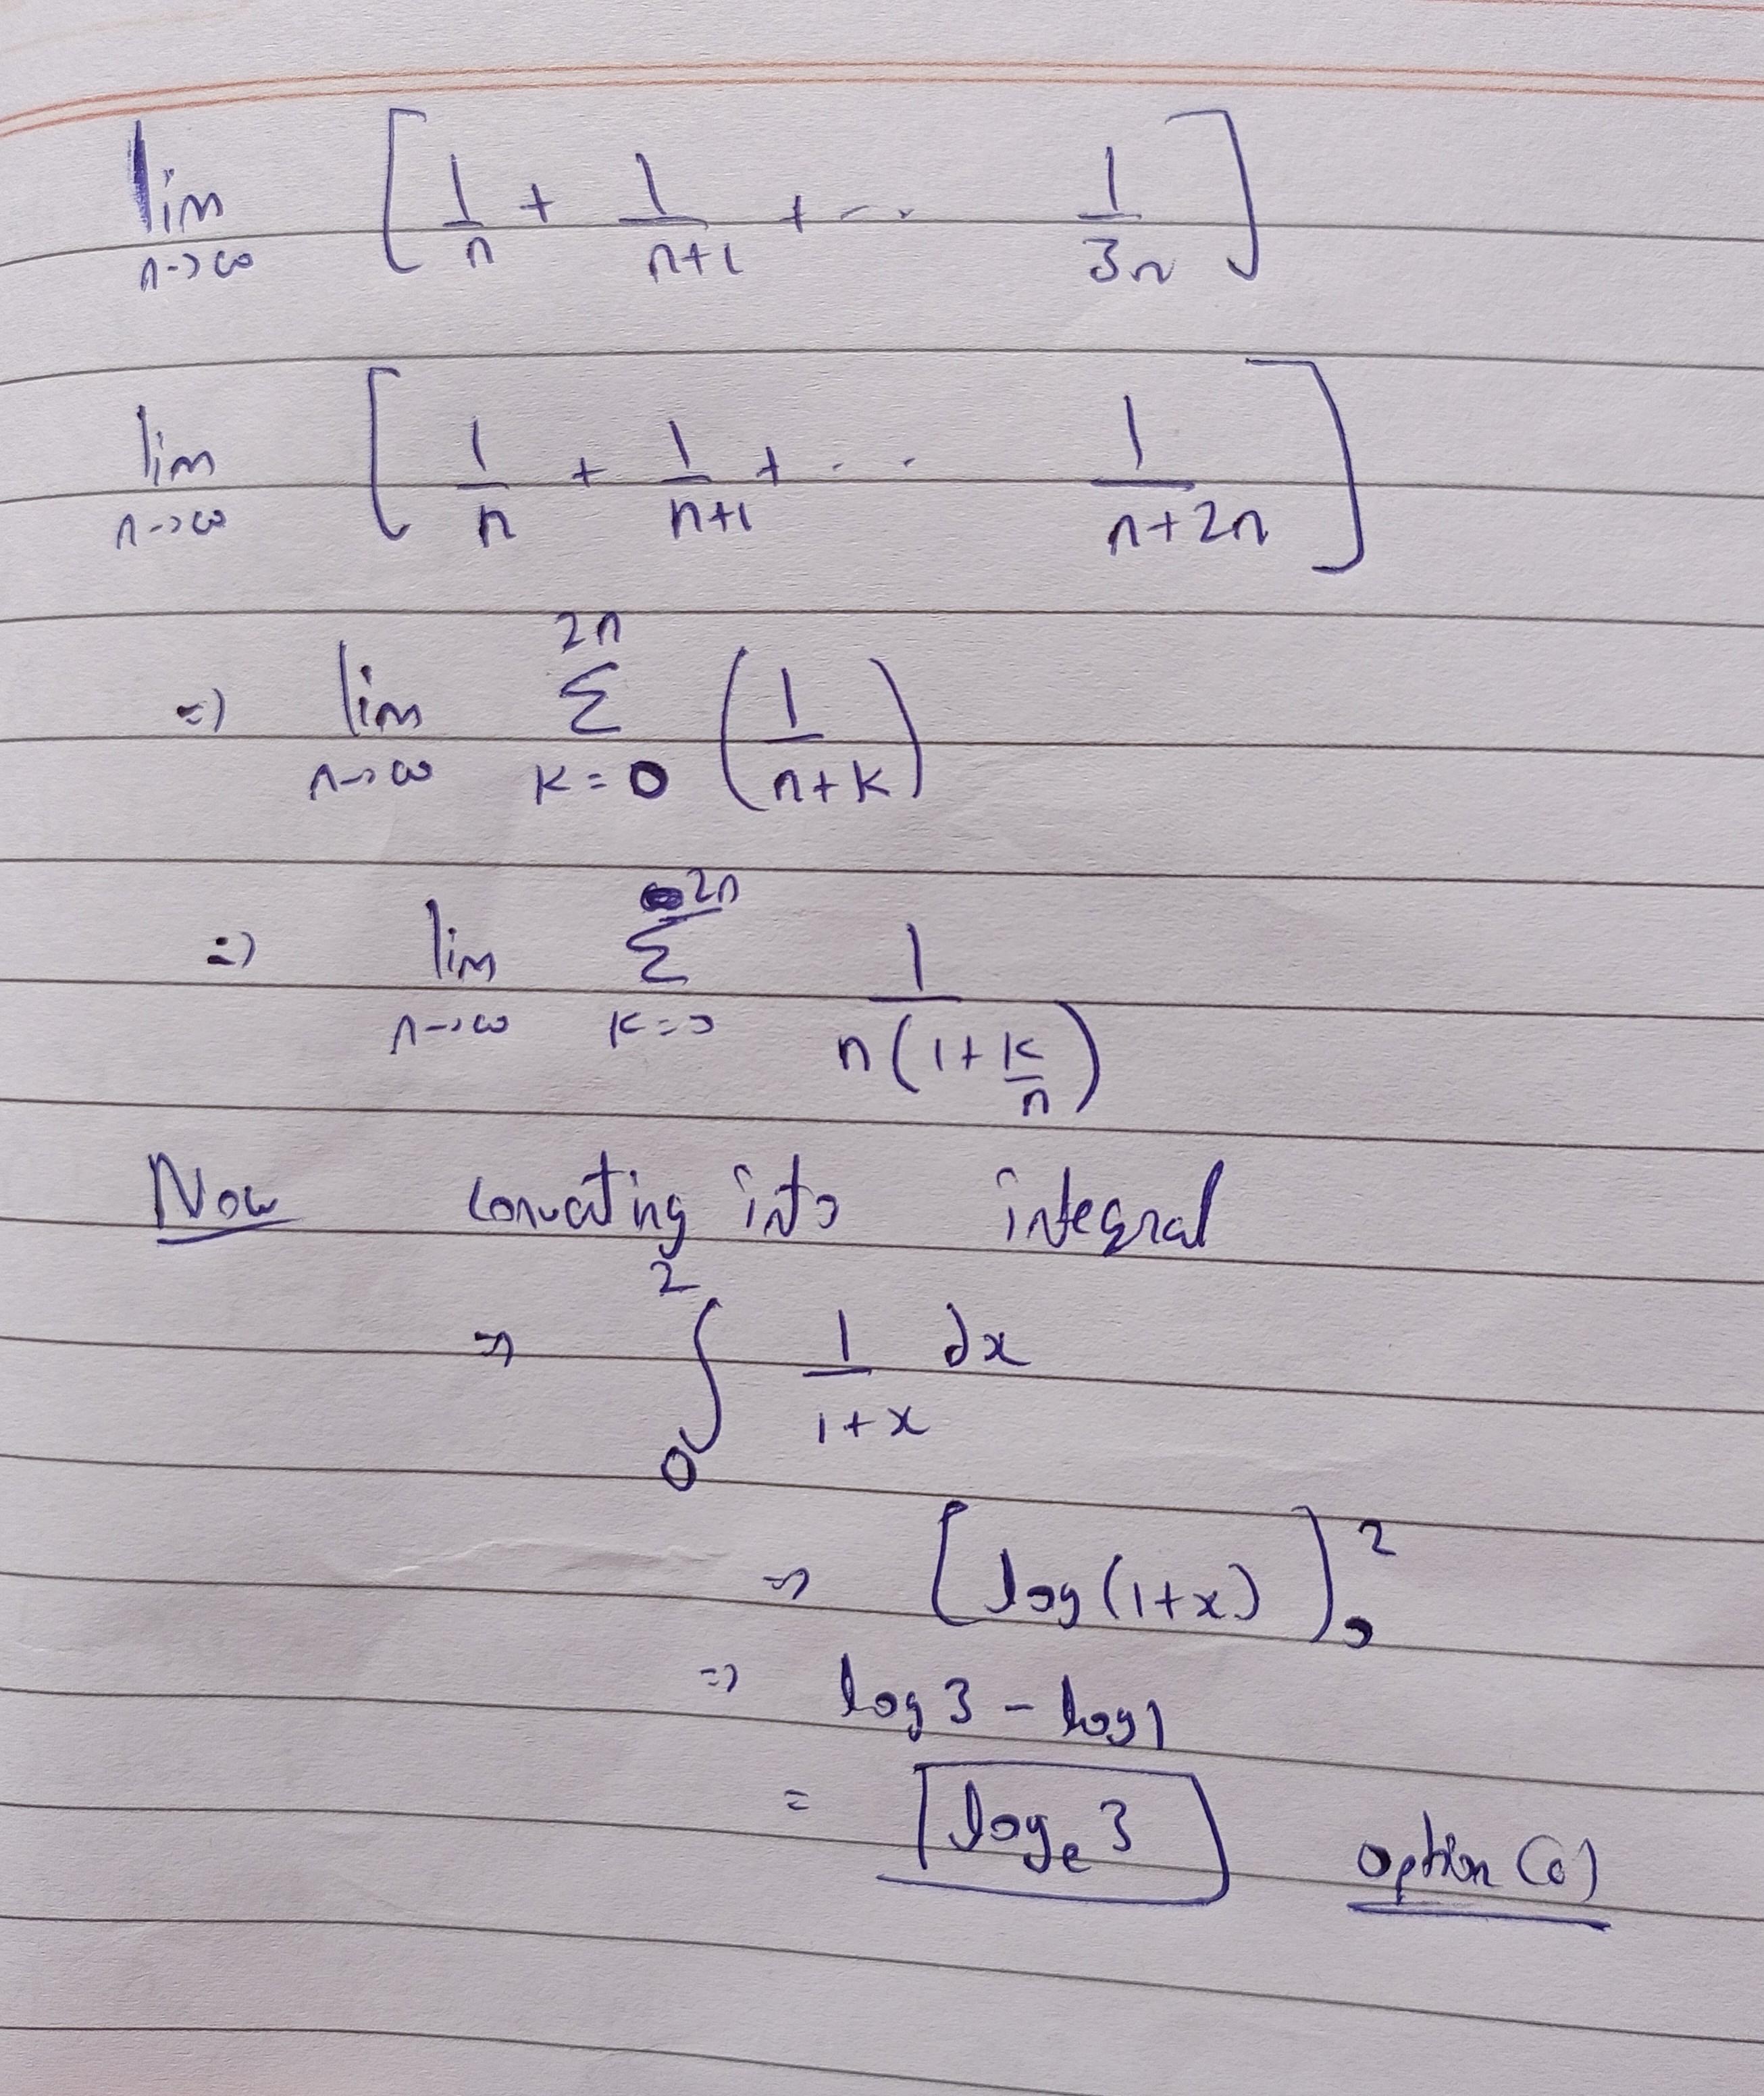 lim n→∞ [ 1/n + 1/(n+1) + -- . 1/3n ]
lim n→∞ [ 1/n + 1/(n+1) + . . 1/(n+2n) ]
⇒ lim n→∞ 2n Σ k=0 ( 1/(n+k) )
⇒ lim n→∞ 2n Σ k=0 1/(n(1+k/n))
Now converting into integral
⇒ ∫₀² 1/(1+x) dx
⇒ [log(1+x)]₀²
⇒ log 3 - log 1
= logₑ 3 option